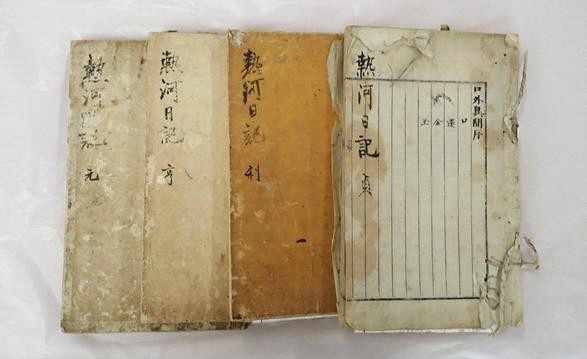 熱河日記 元
熱河日記 亨
熱河日記 利
熱河日記 貞
口外異聞